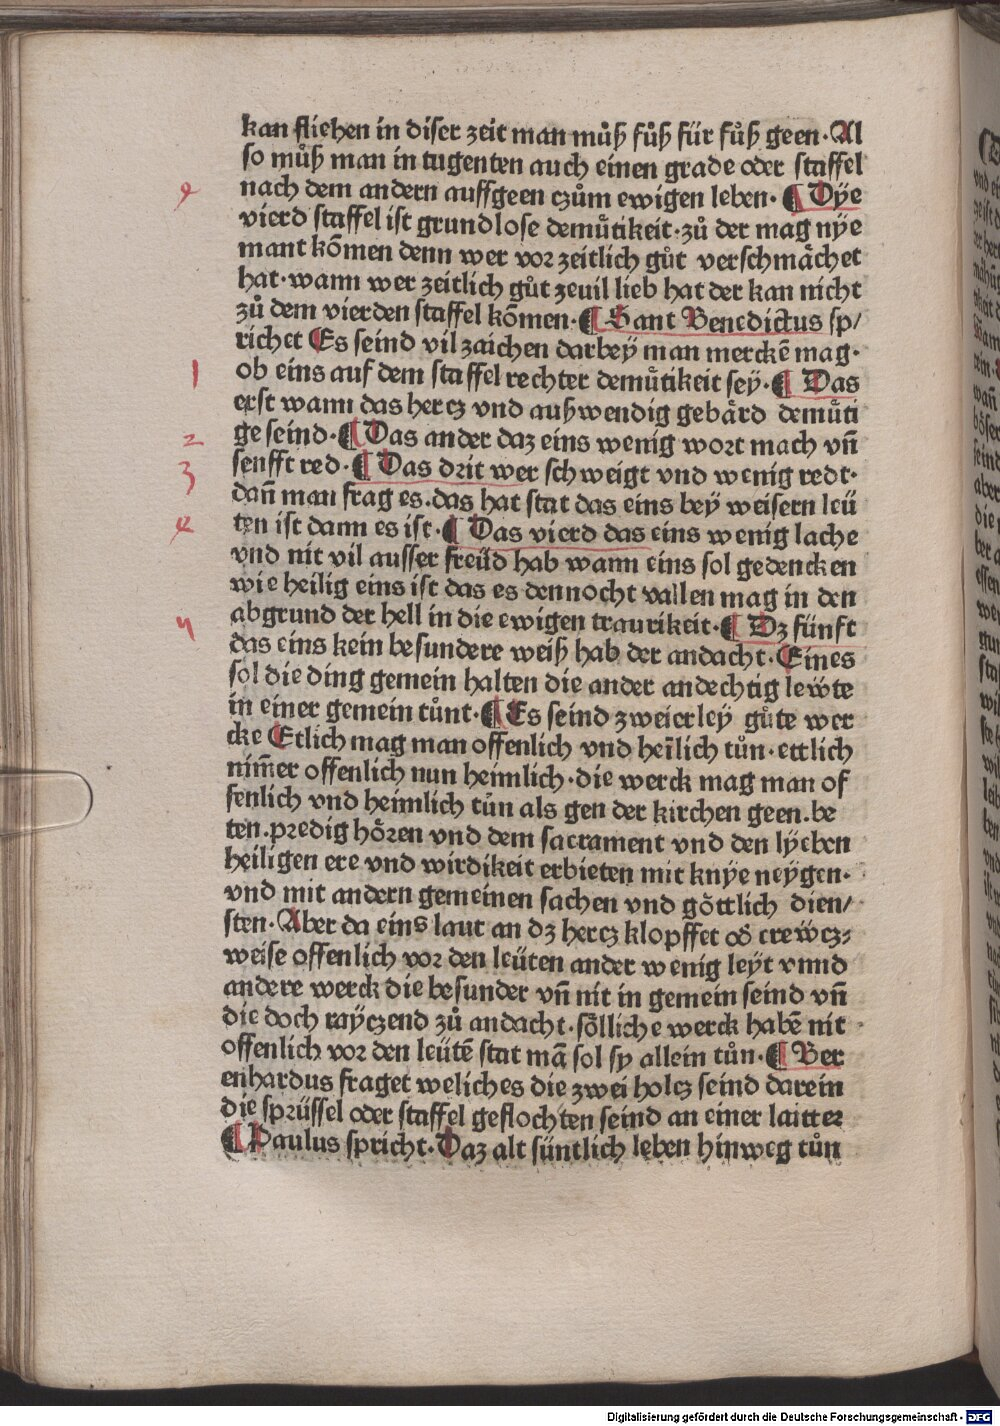 kan fliehen in diser zeit man můß fůß für fůß geen· Al
so můß man in tugenten auch einen grade oder staffel
4 nach dem andern auffgeen czům ewigen leben· ¶ Dye
vierd staffel ist grundlose demůtikeit·zů der mag nye
mant kōmen denn wer vor zeitlich gůt verschmächet
hat·wann wer zeitlich gůt zeuil lieb hat der kan nicht
zů dem vierden staffel kōmen·¶ Sant Benedictus sp/
richet Es seind vil zaichen darbey man merckē mag·
1 ob eins auf dem staffel rechter demůtikeit sey·¶ Das
erst wann das hercz vnd außwendig gebärd demůti
2 ge seind·¶ Das ander daz eins wenig wort mach vn̄
3 senfft red·¶ Das drit wer schweigt vnd wenig redt·
dan̄ man frag es.das hat stat das eins bey weisern leü
4 ten ist dann es ist·¶ Das vierd das eins wenig lache
vnd nit vil ausser freüd hab wann eins sol gedencken
wie heilig eins ist das es dennocht vallen mag in den
5 abgrund der hell in die ewigen traurikeit·¶ Dz fünft
das eins kein besundere weiß hab der andacht·Eines
sol die ding gemein halten die ander andechtig lewte
in einer gemein tůnt·¶ Es seind zweierley gůte wer
cke Etlich mag man offenlich vnd heīlich tůn·ettlich
nim̄er offenlich nun heimlich·die werck mag man of
fenlich vnd heimlich tůn als gen der kirchen geen.be
ten.predig hören vnd dem sacrament vnd den lyeben
heiligen ere vnd wirdikeit erbieten mit knye neygen·
vnd mit andern gemeinen sachen vnd göttlich dien/
sten·Aber da eins laut an dz hercz klopffet od̄ crewcz⸗
weise offenlich vor den leüten ander wenig leyt vnnd
andere werck die besunder vn̄ nit in gemein seind vn̄
die doch rayczend zů andacht·sölliche werck habē nit
offenlich vor den leütē stat mā sol sy allein tůn·¶ Ber
enhardus fraget weliches die zwei holcz seind darein
die sprüssel oder staffel geflochten seind an einer laitter
¶ Paulus spricht·Daz alt süntlich leben hinweg tůn
Digitalisierung gefördert durch die Deutsche Forschungsgemeinschaft - DFG